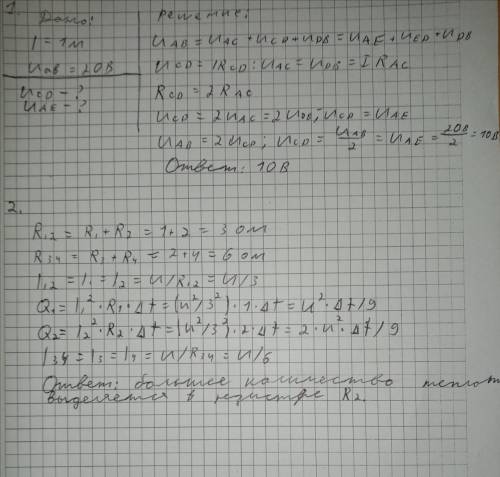 1.
Дано:
Решение:
l = 1м
U_AB = 20В
U_CD - ?
U_AE - ?
U_AB = U_AC + U_CD + U_DB = U_AE + U_ED + U_DB
U_CD = I R_CD : U_AC = U_DB = I R_AC
R_CD = 2 R_AC
U_CD = 2 U_AC = 2 U_DB; U_CD = U_AE
U_AB = 2 U_CD; U_CD = U_AB/2 = U_AE = 20В/2 = 10В
Ответ: 10В
2.
R₁₂ = R₁ + R₂ = 1 + 2 = 3 ом
R₃₄ = R₃ + R₄ = 2 + 4 = 6 ом
I₁₂ = I₁ = I₂ = U/R₁₂ = U/3
Q₁ = I₁² · R₁ · Δt = (U²/3²) · 1 · Δt = U² · Δt/9
Q₂ = I₂² · R₂ · Δt = (U²/3²) · 2 · Δt = 2 · U² · Δt/9
I₃₄ = I₃ = I₄ = U/R₃₄ = U/6
Ответ: большее количество теплот
выделяется в резисторе R₂.